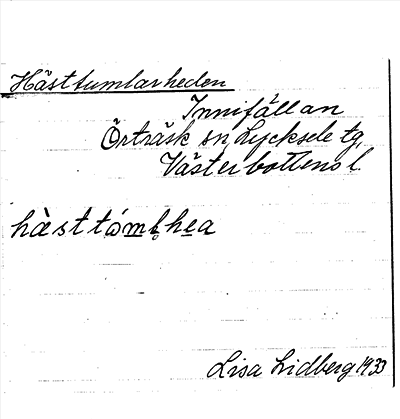 Hästtumlarheden
Innifällan
Örträsk sn, Lycksele tg,
Västerbottens l.
hàsttómḷhea
Lisa Lidberg 1933